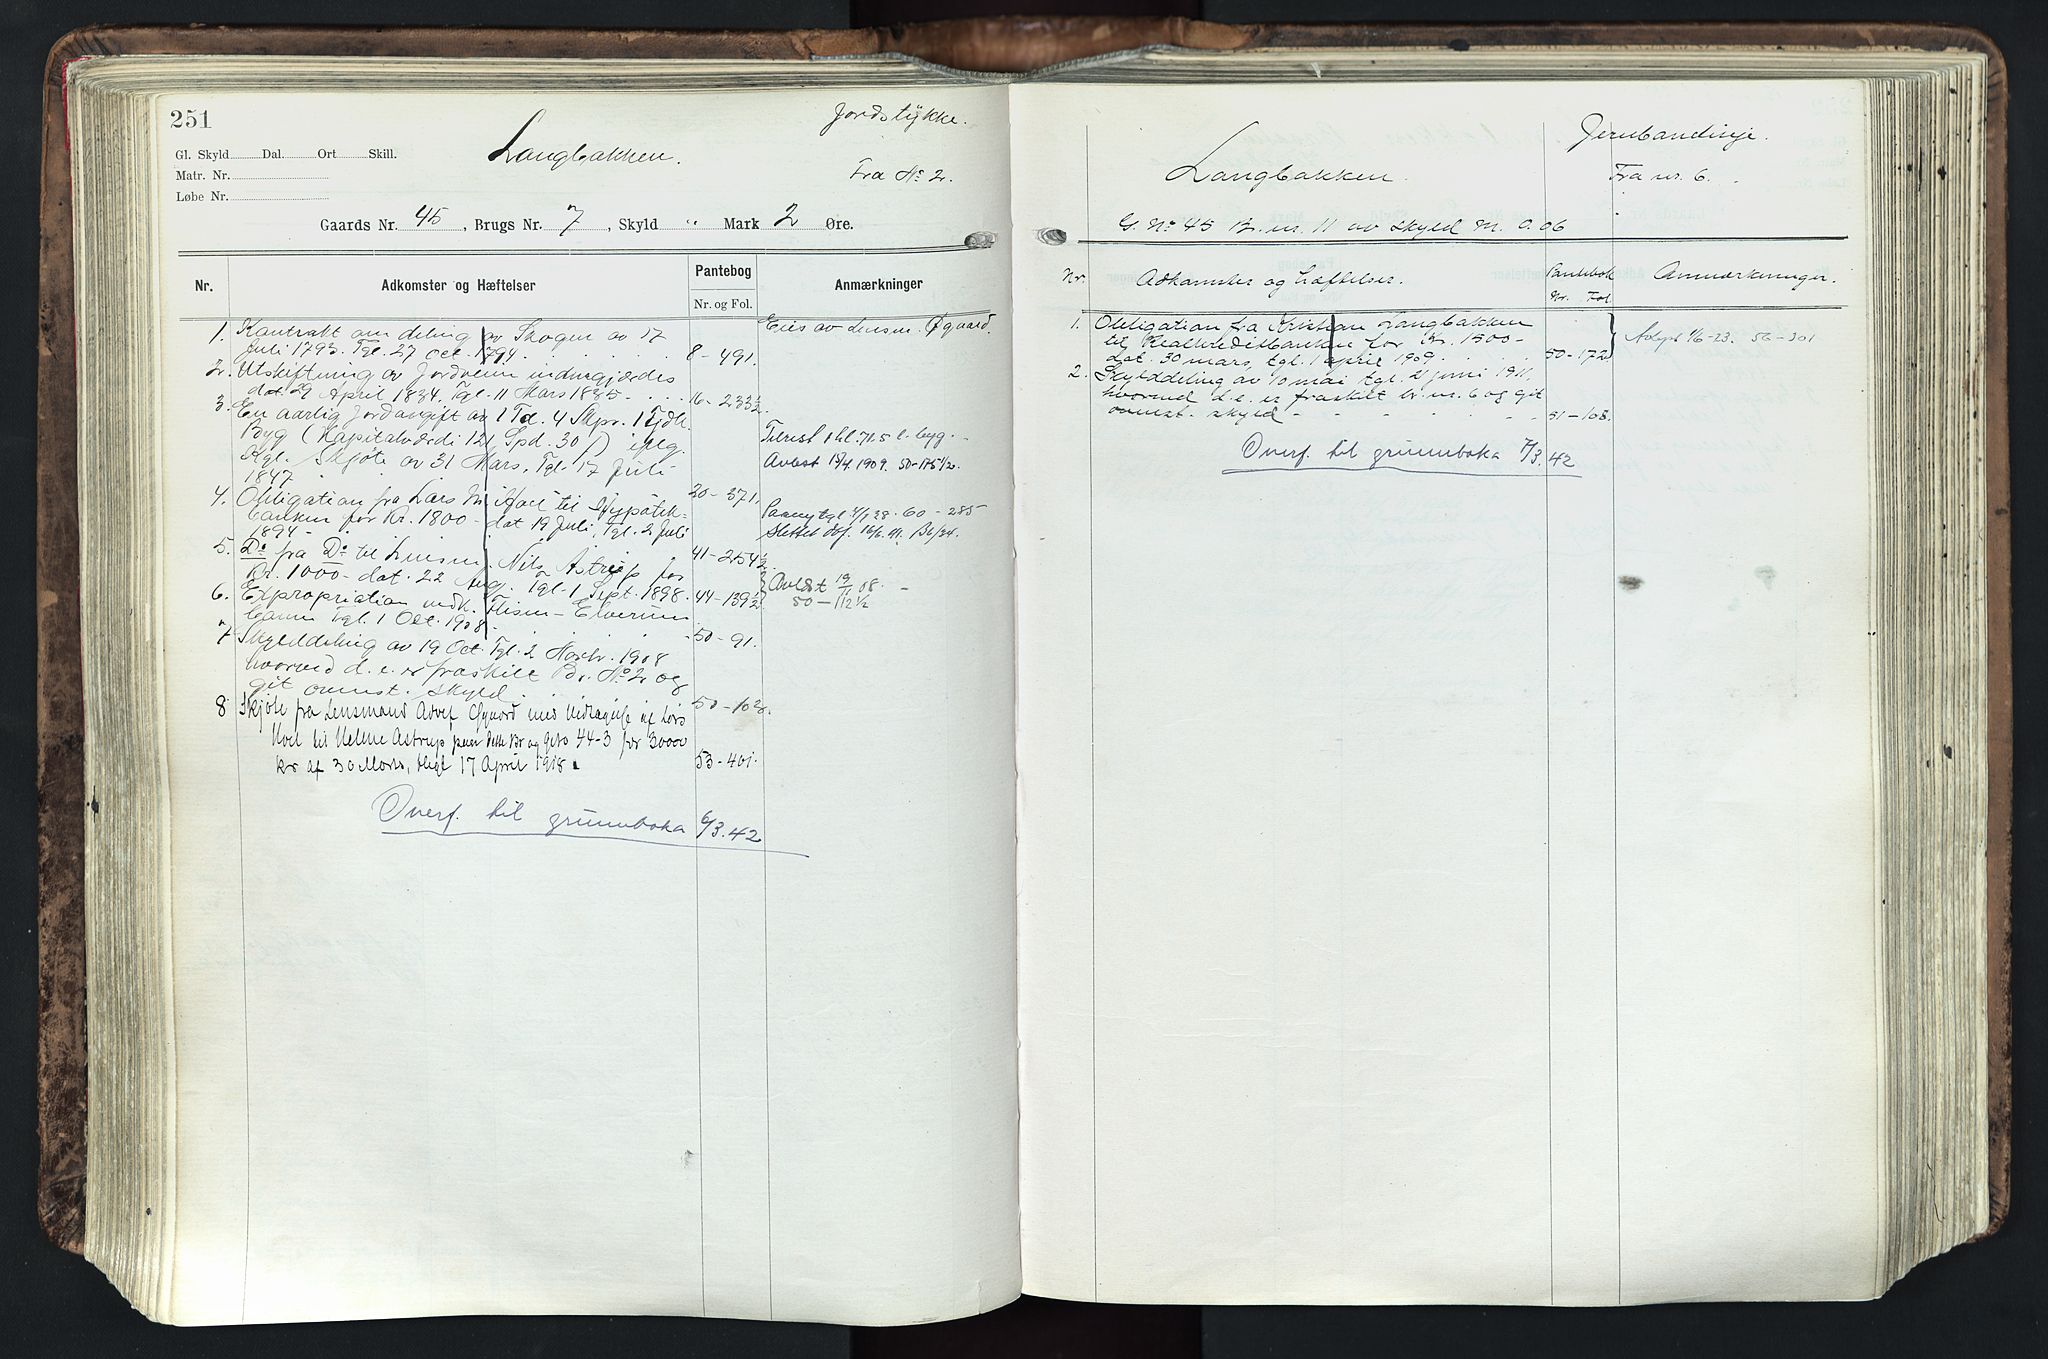 251
Jordstykke.
Gl. Skyld Dal. Ort Skill.
Langbakken.
Matr. Nr.
Fra No 2.
Løbe Nr.
Gaards Nr. 45, Brugs Nr. 7, Skyld " Mark 2 Øre.
Nr. Adkomster og Hæftelser Pantebog Anmærkninger
Nr. og Fol.
1. Kontrakt om deling av Skogen av 17 Eies av Lensm. Øgaard.
Juli 1793. Tgl. 27 Oct. 1794. 8-491.
2. Utskiftning av Jordveien indengjærdes
dat. 29 April 1834. Tgl. 11 Mars 1835 - 16-233½
3. En aarlig Jordavgift av 1 Td. 4 Skpr. 1 Fjdk.
Byg (Kapitalværdi 121 Spd. 30 ) iflg. Tilrest 1 hl. 71.5 l. byg.
Kgl. Skjøte av 31 Mars, Tgl. 17 Juli Avløst 15/4 1909. 50-175½.
1847 20-371.
4. Obligation fra Lars M. Hoel til Hypothek-
banken for Kr. 1800 - dat 19 Juli, Tgl. 2 Juli Paany tgl. 60-285
1894 - 41-254½ Slettet
5. Do fra Do til Lensm. Nils Astrup for
Kr. 1000 - dat. 22 Aug. Tgl. 1 Sept. 1898. 44-139½ Avlæst 19/11 08.
50-112½
6. Expropriation vedk. Flisen-Elverum
banen Tgl. 1 Oct. 1908. 50-91.
7. Skylddeling av 19 Oct. Tgl. 2 Novbr. 1908
hvorved d. e. er fraskilt Br. No 2 og
git ovenst. skyld 50-102.
8 Skjøte fra Lensmand Adolf Øgaard med Vidragelse af Lars
Hoel til Helene Astrup paa dette Br og gno 44-3 for 30000
kr af 30 Marts, thlgl 17 April 1918. 53-401.
Overf. til grunnboka 6/3.42
Jernbanelinje.
Langbakken. Fra nr. 6.
G. No 45 B. nr. 11 av Skyld M. 0.06
Nr. Adkomster og Hæftelser. Pantebok Anmærkninger.
Nr. Fol.
1. Obligation fra Kristian Langbakken
til Realkreditbanken for Kr. 1500- Avlyst 1/6-23. 56-301
dat. 30 mars, tgl. 1 april 1909. 50-172
2. Skylddeling av 10 mai tgl. 21 juni 1911,
hvorved d. e. er fraskilt br. nr. 6 og git
ovenst. skyld - 51-108.
Overf. til grunnboka 7/3.42